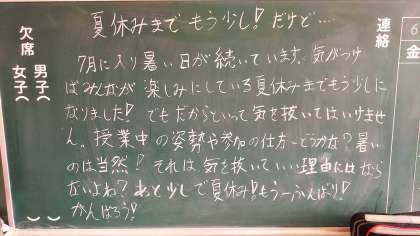 夏休みまでもう少し!だけど…
7月に入り暑い日が続いています。気がつけ
ばみんなが楽しみにしている夏休みまでもう少しに
なりました!でもだからといって気を抜いてはいけませ
ん。授業中の姿勢や参加の仕方…どうかな?暑い
のは当然!それは気を抜いていい理由にはなら
ないよね?あと少しで夏休み!もう一ふんばり!
がんばろう!
連絡
6
金
欠席
男子( )
女子( )